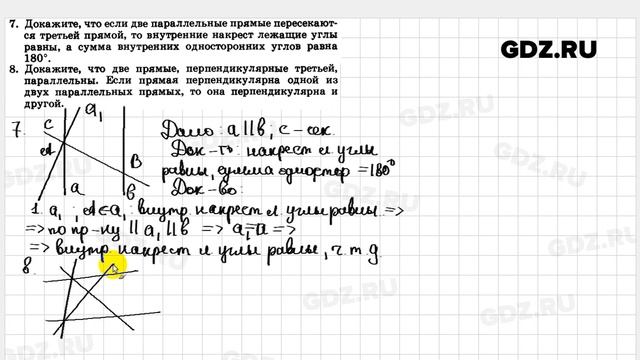 7. Докажите, что если две параллельные прямые пересекают-
ся третьей прямой, то внутренние накрест лежащие углы
равны, а сумма внутренних односторонних углов равна
180°.
8. Докажите, что две прямые, перпендикулярные третьей,
параллельны. Если прямая перпендикулярна одной из
двух параллельных прямых, то она перпендикулярна и
другой.
GDZ.RU
7.
c
a₁
A
B
a
b
Дано: a||b; c-сек.
Док-ть: накрест л углы
равны, сумма одностор =180°
Док-во:
1. a₁; A∈a₁; внутр накрест л. углы равны =>
=> по пр-ку || a₁||b => a₁=a =>
=> внутр. накрест л углы равны, ч. т. д.
8.